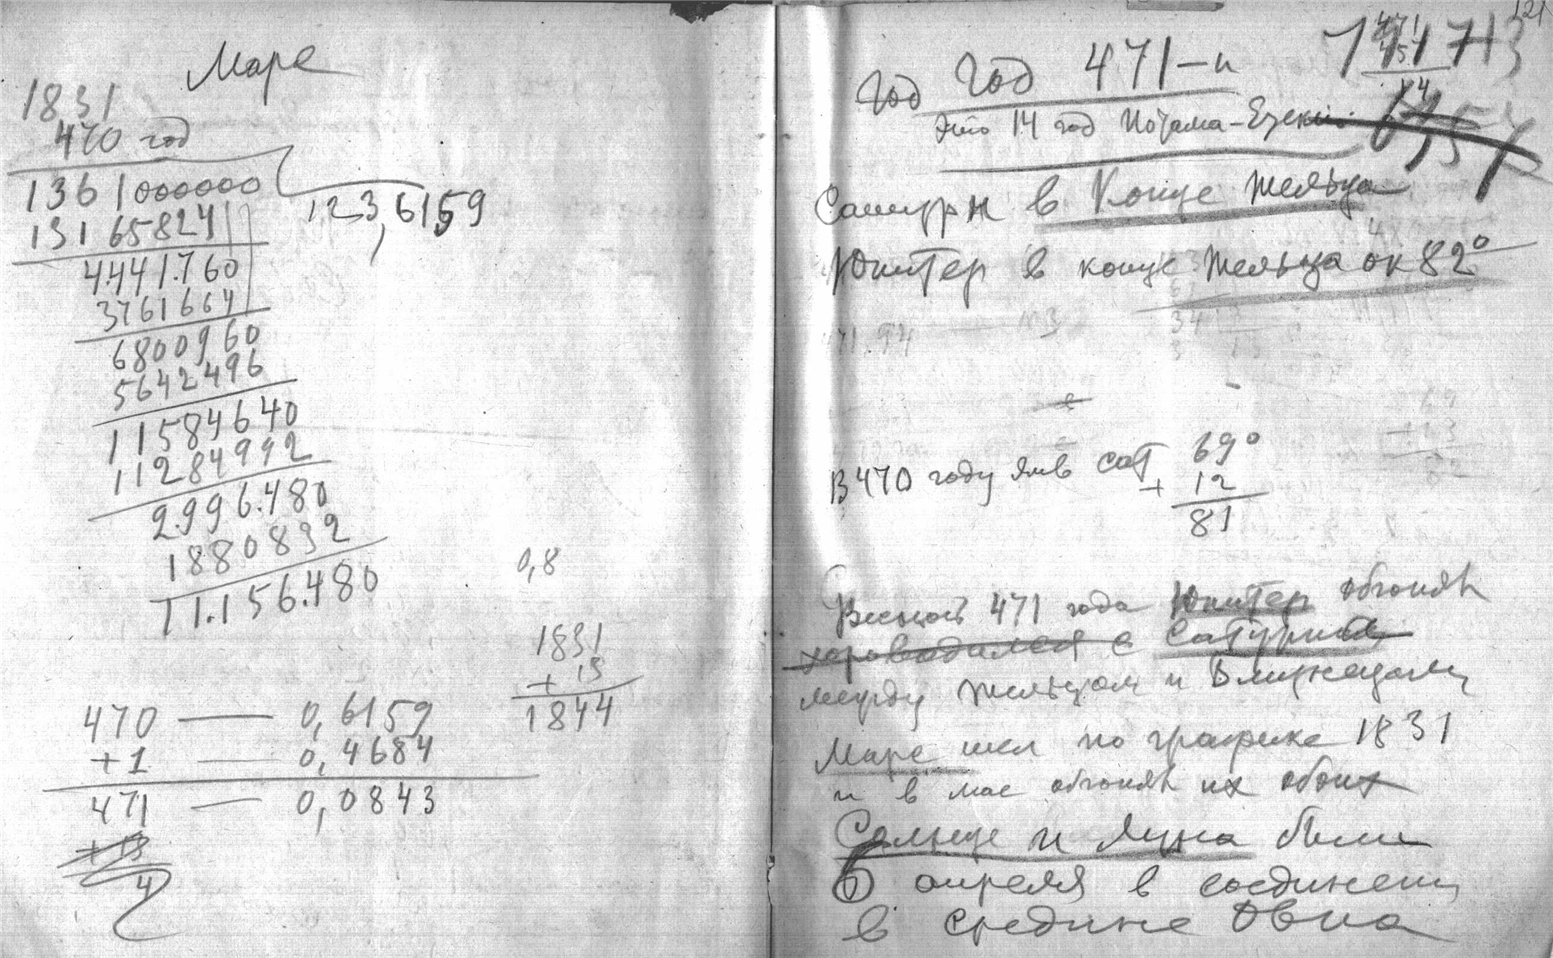 Марс
1831
470 год
1361000000
123,6159
13165824
4441.760
3761664
6800960
5642496
11584640
11284992
2996.480
1880832
11.156.480
0,8
1831
+ 13
1844
470 — 0,6159
+1 — 0,4684
471 — 0,0843
4
121
Год Год 471-й
471
14
Это 14 год
Сатурн в конце Тельца
Юпитер в конце Тельца ок 82°
В 470 году янв сат 69°
+ 12
81
Весной 471 года Юпитер обгонял
хороводился с Сатурна
между Тельцом и Близнецами
Марс шел по графике 1831
и в мае обгонял их обоих
Солнце и Луна были
апреля в соединении
в средине Овна